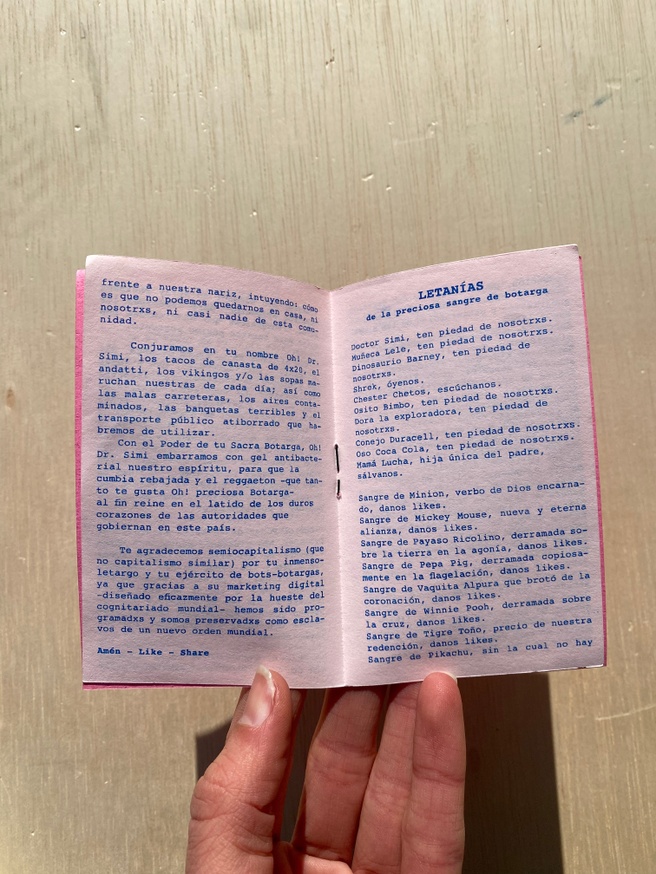 frente a nuestra nariz, intuyendo: cómo
es que no podemos quedarnos en casa, ni
nosotrxs, ni casi nadie de esta comu-
nidad.
Conjuramos en tu nombre Oh! Dr.
Simi, los tacos de canasta de 4x20, el
andatti, los vikingos y/o las sopas ma-
ruchan nuestras de cada día; así como
las malas carreteras, los aires conta-
minados, las banquetas terribles y el
transporte público atiborrado que ha-
bremos de utilizar.
Con el Poder de tu Sacra Botarga, Oh!
Dr. Simi embarramos con gel antibacte-
rial nuestro espíritu, para que la
cumbia rebajada y el reggaeton -que tan-
to te gusta Oh! preciosa Botarga-
al fin reine en el latido de los duros
corazones de las autoridades que
gobiernan en este país.
Te agradecemos semiocapitalismo (que
no capitalismo similar) por tu inmenso
letargo y tu ejército de bots-botargas,
ya que gracias a su marketing digital
-diseñado eficazmente por la hueste del
cognitariado mundial- hemos sido pro-
gramadxs y somos preservadxs como escla-
vos de un nuevo orden mundial.
Amén - Like - Share
LETANÍAS
de la preciosa sangre de botarga
Doctor Simi, ten piedad de nosotrxs.
Muñeca Lele, ten piedad de nosotrxs.
Dinosaurio Barney, ten piedad de
nosotrxs.
Shrek, óyenos.
Chester Chetos, escúchanos.
Osito Bimbo, ten piedad de nosotrxs.
Dora la exploradora, ten piedad de
nosotrxs.
Conejo Duracell, ten piedad de nosotrxs.
Oso Coca Cola, ten piedad de nosotrxs.
Mamá Lucha, hija única del padre,
sálvanos.
Sangre de Minion, verbo de Dios encarna-
do, danos likes.
Sangre de Mickey Mouse, nueva y eterna
alianza, danos likes.
Sangre de Payaso Ricolino, derramada so-
bre la tierra en la agonía, danos likes.
Sangre de Pepa Pig, derramada copiosa-
mente en la flagelación, danos likes.
Sangre de Vaquita Alpura que brotó de la
coronación, danos likes.
Sangre de Winnie Pooh, derramada sobre
la cruz, danos likes.
Sangre de Tigre Toño, precio de nuestra
redención, danos likes.
Sangre de Pikachu, sin la cual no hay